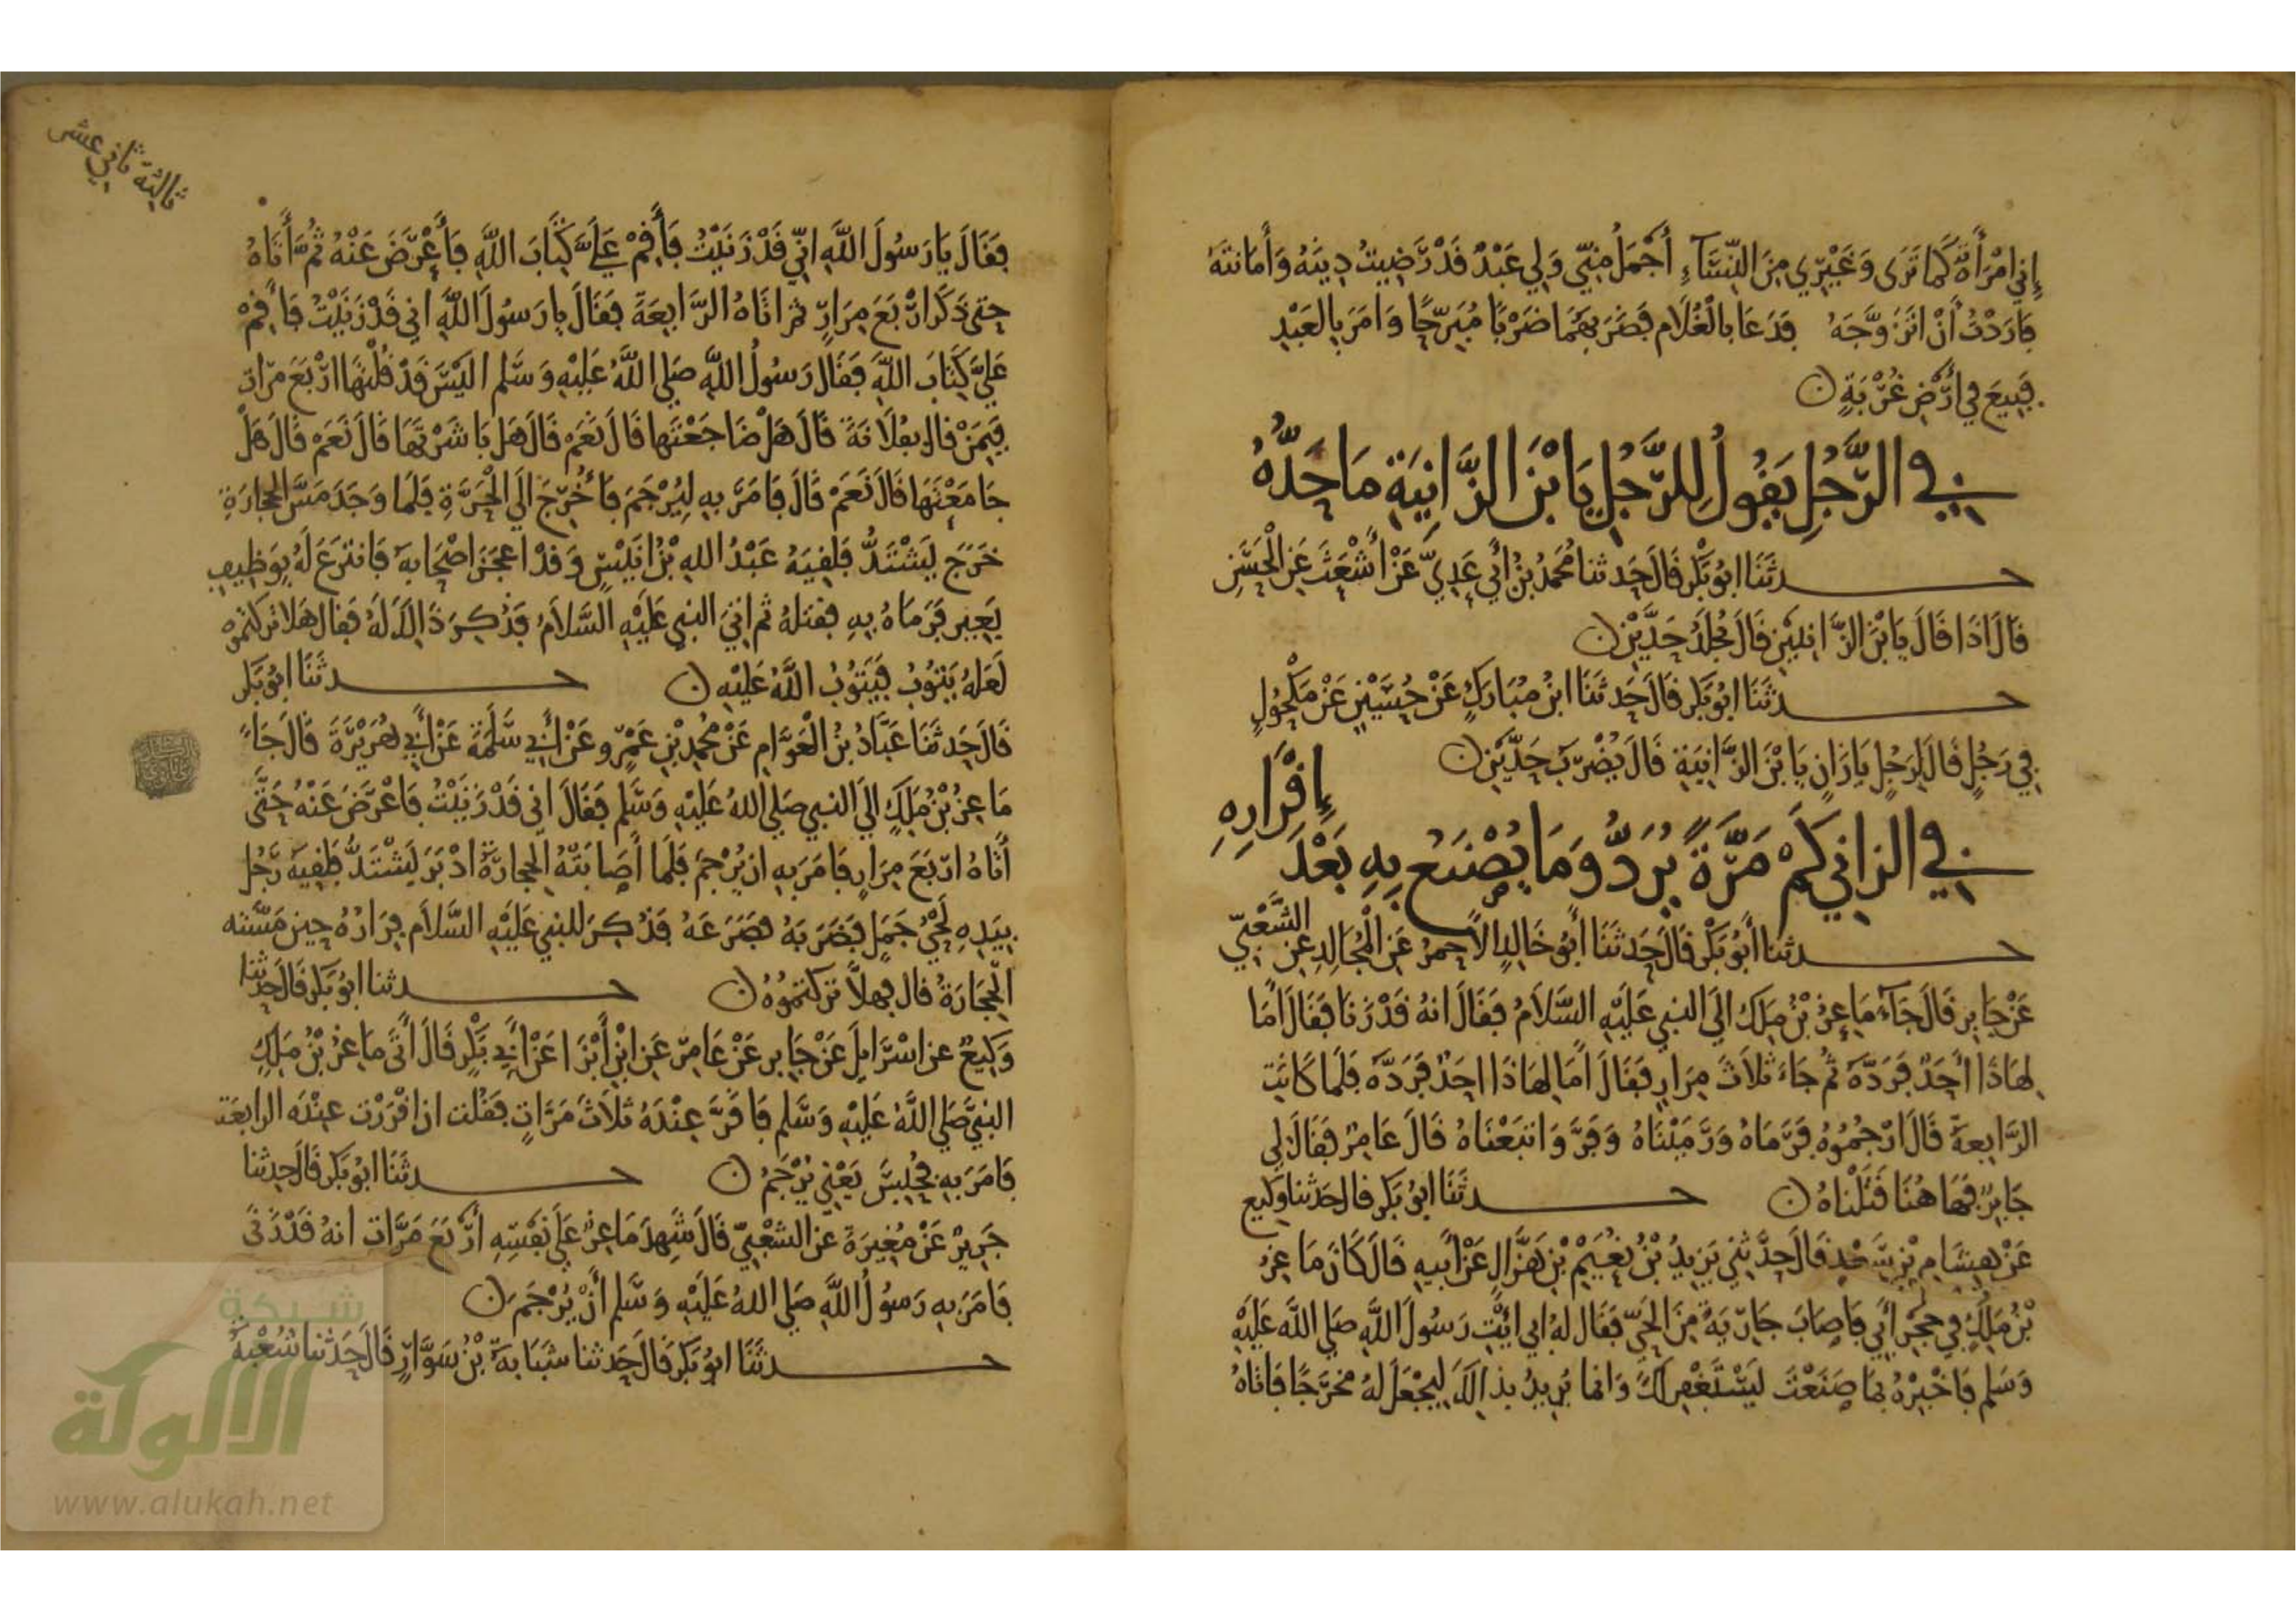 إني امْرَأَةٌ كَمَا تَرَى وَغَيْرِي مِنَ النِّسَآءِ أَجْمَلُ مِنِّي وَلِي عَبْدٌ قَدْ رَضِيتُ دِينَهُ وَأَمَانَتَهُ
فَارَدْتُ أَنْ اتَزَوَّجَهُ فَدَعَا بِالْغُلَامِ فَضَرَبَهُمَا ضَرْبًا مُبَرِّحًا وَامَرَ بِالعَبْدِ
فَبِيعَ فِي أَرْضِ غُرْبَةٍ
فِي الرَّجُلِ يَقُولُ لِلرَّجُلِ يَا بْنَ الزَّانِيَةِ مَا حَدُّهُ
حدثَنَا ابُو بَكْرٍ قَالَ حَدثنا مُحَمَّدُ بْنُ أَبِي عَدِيٍّ عَنْ أَشْعَثَ عَنِ الْحَسَنِ
قَالَ اذَا قَالَ يَا بْنَ الزَّانِيَيْنِ قَالَ يُجْلَدُ حَدَّيْنِ
حدثَنَا ابُو بَكْرٍ قَالَ حَدثَنَا ابْنُ مُبَارَكٍ عَنْ حُسَيْنٍ عَنْ مَكْحُولٍ
فِي رَجُلٍ قَالَ لِرَجُلٍ يَا زَانٍ يَا بْنَ الزَّانِيَةِ قَالَ يُضْرَبُ حَدَّيْنِ
فِي الزانِي كَمْ مَرَّةً يُرَدُّ وَمَا يُصْنَعُ بِهِ بَعْدَ إِقْرَارِهِ
حدثنا أَبُو بَكْرٍ قَالَ حَدثَنَا أَبُو خَالِدٍ الأَحْمَرُ عَنِ الْمُجَالِدِ عَنِ الشَّعْبِيِّ
عَنْ جَابِرٍ قَالَ جَآءَ مَاعِزُ بْنُ مَلِكٍ الَى النبي عَلَيْهِ السَّلَامُ فَقَالَ انهُ قَدْ زَنَا فَقَالَ أَمَا
لِهَاذَا أَحَدٌ فَرَدَّهُ ثُمَّ جَاءَ ثَلَاثَ مِرَارٍ فَقَالَ أَمَا لِهَاذَا احَدٌ فَرَدَّهُ فَلَمَا كَانَتِ
الرَّابِعَةُ قَالَ ارْجُمُوهُ فَرَمَاهُ وَرَمَيْنَاهُ وَفَرَّ وَاتبَعْنَاهُ قَالَ عَامِرٌ فَقَالَ لِي
جَابِرٌ فَهَا هُنَا قَتَلْنَاهُ حدثَنَا ابُو بَكْرٍ قالَ حَدثنا وَكِيع
عَنْ هِشَامِ بْنِ سَعْدٍ قَالَ حَدَّثَنِي يَزِيدُ بْنُ نُعَيْمِ بْنِ هَزَّالٍ عَنْ أَبِيهِ قَالَ كَانَ مَاعِزُ
بْنُ مَلِكٍ فِي حَجْرِ أَبِي فَاصَابَ جَارِيَةً مِنَ الحَيِّ فَقَالَ لَهُ ابِي ائْتِ رَسُولَ اللَّهِ صَلى اللَّه عَلَيْهِ
وَسَلم فَاخْبِرْهُ بِمَا صَنَعْتَ لَيَسْتَغْفِر لَكَ وَانما يُرِيدُ بِذَالِكَ لِيَجْعَلَ لَهُ مَخْرَجًا فَاتَاهُ
ثالثة ثاني عشر
فَقَالَ يَا رَسُولَ اللَّهِ انِّي قَدْ زَنَيْتُ فَأَقِمْ عَلَيَّ كِتَابَ اللَّهِ فَأَعْرَضَ عَنْهُ ثُمَّ أَتَاهُ
حتَى ذَكَرَ ارْبَعَ مِرَارٍ ثمَّ اتَاهُ الرَّابِعَةَ فَقَالَ يا رَسُولَ اللَّهِ اني قَدْ زَنَيْتُ فَأَقِمْ
عَلَيَّ كِتَابَ اللَّهِ فَقَالَ رَسُولُ اللَّهِ صَلى اللَّهُ عَلَيْهِ وَسَلم الَيْسَ قَدْ قُلْتَهَا ارْبَعَ مرَّات
فَبِمَنْ قال بِفُلَانَةَ قَالَ هَلْ ضَاجَعْتَهَا قَالَ نَعَمْ قَالَ هَلْ بَاشَرْتَهَا قَالَ نَعَمْ قَالَ هَلْ
جَامَعْتَهَا قَالَ نَعَمْ قَالَ فَامَرَ بِهِ لِيُرْجَمَ فَأُخْرِجَ الَى الْحَرَّةِ فَلَمَا وَجَدَ مَسَّ الحِجَارَةِ
خَرَجَ يَشْتَدُّ فَلَقِيَهُ عَبْدُ اللهِ بْنُ انَيْسٍ وَقَدْ اعجَزَ اصْحَابَهُ فَانتزعَ لَهُ بِوَظِيفِ
بَعِيرٍ فَرَمَاهُ بِهِ فقتلهُ ثم اتى النبي عَلَيْهِ السَّلَامُ فَذكِرَ ذَالِكَ لَهُ فَقال هَلا تركتموه
لَعَلهُ يَتُوبُ فَيَتُوبُ اللَّهُ عَلَيْهِ حدثَنَا ابُو بَكْر
قَالَ حَدثَنَا عَبَّادُ بْنُ الْعَوَّامِ عَنْ مُحَمدِ بْنِ عَمْرٍو عَنْ أَبِي سَلَمَةَ عَنْ أَبِي هُرَيْرَةَ قَالَ جَاءَ
مَاعِزُ بْنُ مَلِكٍ الَى النبي صَلى اللهُ عَلَيْهِ وَسَلم فَقَالَ اني قَدْ زَنَيْتُ فَاعْرَضَ عَنْهُ حَتَّى
أَتَاهُ ارْبَعَ مِرَارٍ فَامَرَ بِهِ ان يُرْجَمَ فَلَمَا أَصَابَتْهُ الحِجَارَةُ ادْبَرَ يَشْتَدُّ فَلَقِيَهُ رَجُل
بِيَدِهِ لَحْيُ جَمَلٍ فَضَرَبَهُ فَصَرَعَهُ فَذُكِرَ للنبي عَلَيْهِ السَّلَام فِرَارُهُ حِين مَسَّته
الْحِجَارَةُ قال فَهَلاَّ تَرَكتمُوهُ حدثنا ابُو بَكْرٍ قَالَ حَدثنا
وَكِيعٌ عن اسْرَايِلَ عَنْ جَابِرٍ عَنْ عَامِرٍ عَنِ ابْنِ أَبْزَا عَنْ أَبِي بَكْرٍ قَالَ أَتَى مَاعِزُ بْنُ مَلِكٍ
النبِيَّ صَلى اللَّهُ عَلَيْهِ وَسَلم فَاقَرَّ عِنْدَهُ ثَلَاثَ مَرَّاتٍ فَقُلت ان اقْرَرْت عِنْدَه الرابعَة
فَامَرَ بِهِ فَحُبِسَ يَعْنِي يُرْجَمُ حدثَنَا ابُو بَكْرٍ قَالَ حَدثنا
جَرِيرٌ عَنْ مُغِيرَةَ عَنِ الشعْبِيِّ قَالَ شَهِدَ مَاعِزٌ عَلَى نَفْسِهِ أَرْبَعَ مَرَّات انهُ قَدْ زَنَى
فَامَرَ بِهِ رَسُولُ اللَّهِ صَلى اللهُ عَلَيْهِ وَسَلم أَنْ يُرْجَمَ
حدثَنَا ابُو بَكْرٍ قَالَ حَدثنا شَبَابَةُ بْنُ سَوَّارٍ قَالَ حَدثنا شُعْبَةُ
شبكة
الألوكة
www.alukah.net